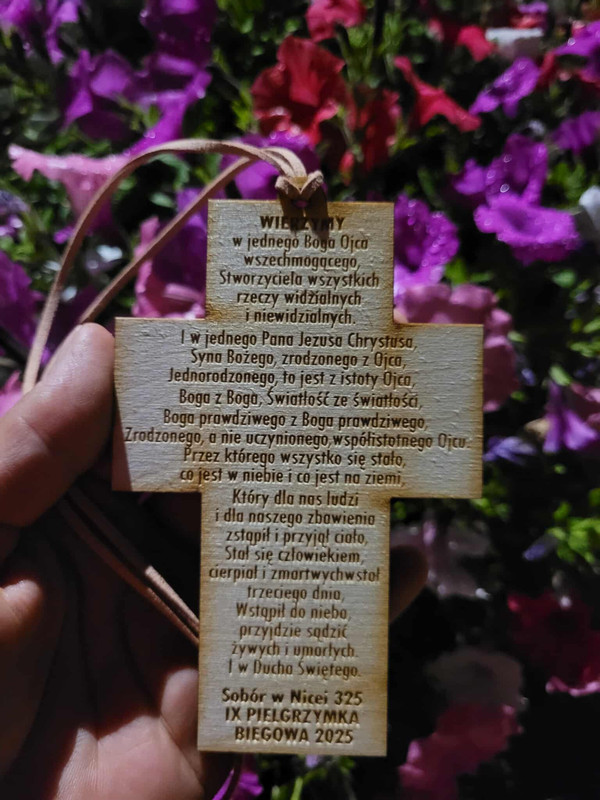 WIERZYMY
w jednego Boga Ojca
wszechmogącego,
Stworzyciela wszystkich
rzeczy widzialnych
i niewidzialnych.
I w jednego Pana Jezusa Chrystusa,
Syna Bożego, zrodzonego z Ojca,
Jednorodzonego, to jest z istoty Ojca,
Boga z Boga, Światłość ze światłości,
Boga prawdziwego z Boga prawdziwego,
Zrodzonego, a nie uczynionego,współistotnego Ojcu.
Przez którego wszystko się stało,
co jest w niebie i co jest na ziemi,
Który dla nas ludzi
i dla naszego zbawienia
zstąpił i przyjął ciało,
Stał się człowiekiem,
cierpiał i zmartwychwstał
trzeciego dnia,
Wstąpił do nieba,
przyjdzie sądzić
żywych i umarłych.
I w Ducha Świętego.
Sobór w Nicei 325
IX PIELGRZYMKA
BIEGOWA 2025